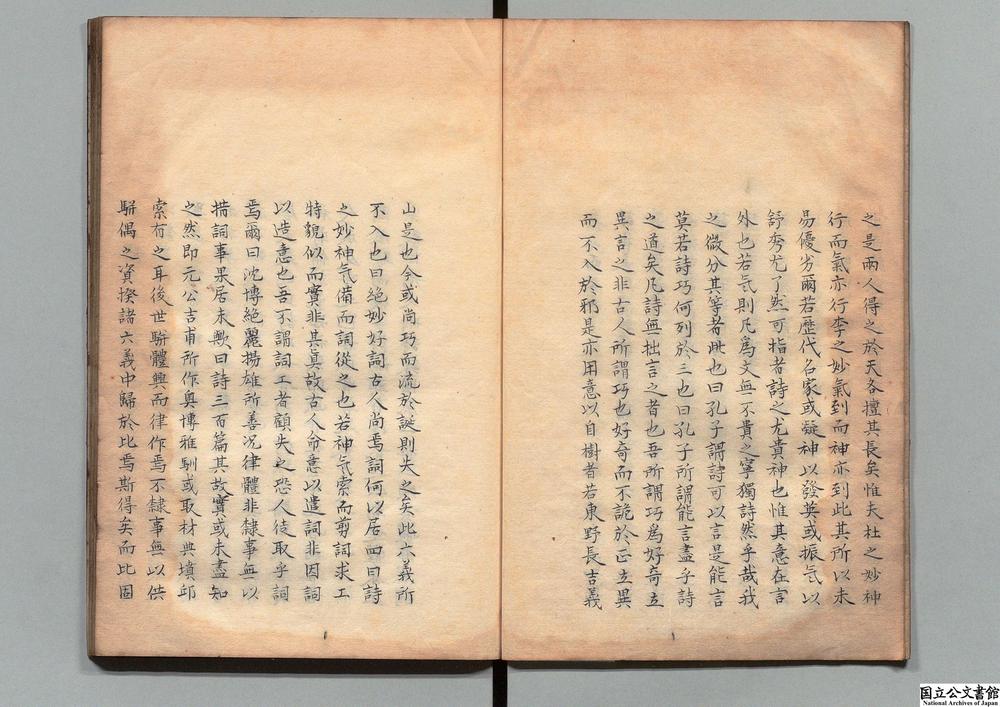 之是兩人得之於天各擅其長矣惟夫杜之妙神
行而氣亦行李之妙氣到而神亦到此其所以未
易優劣爾若歷代名家或凝神以發英或振气以
舒秀尤了然可指者詩之尤貴神也惟其意在言
外也若气則凡為文無不貴之寧獨詩然乎哉我
之微分其等者此也曰孔子謂詩可以言是能言
莫若詩巧何列於三也曰孔子所謂能言盡乎詩
之道矣凡詩無拙言之者也吾所謂巧為好奇立
異言之非古人所謂巧也好奇而不詭於正立異
而不入於邪是亦用意以自樹者若東野長吉義
山是也今或尚巧而流於誕則失之矣此六義所
不入也曰絕妙好詞古人尚焉詞何以居四曰詩
之妙神气備而詞從之也若神气索而剪詞求工
特貌似而實非其真故古人命意以遣詞非因詞
以造意也吾不謂詞工者顧失之恐人徒取乎詞
焉爾曰沈博絕麗揚雄所善況律體非隸事無以
措詞事果居末歟曰詩三百篇其故實或未盡知
之然即元公吉甫所作奧博雅馴或取材典墳邱
索有之耳後世駢體興而律作焉不隸事無以供
駢偶之資揆諸六義中歸於比焉斯得矣而比固
国立公文書館
National Archives of Japan